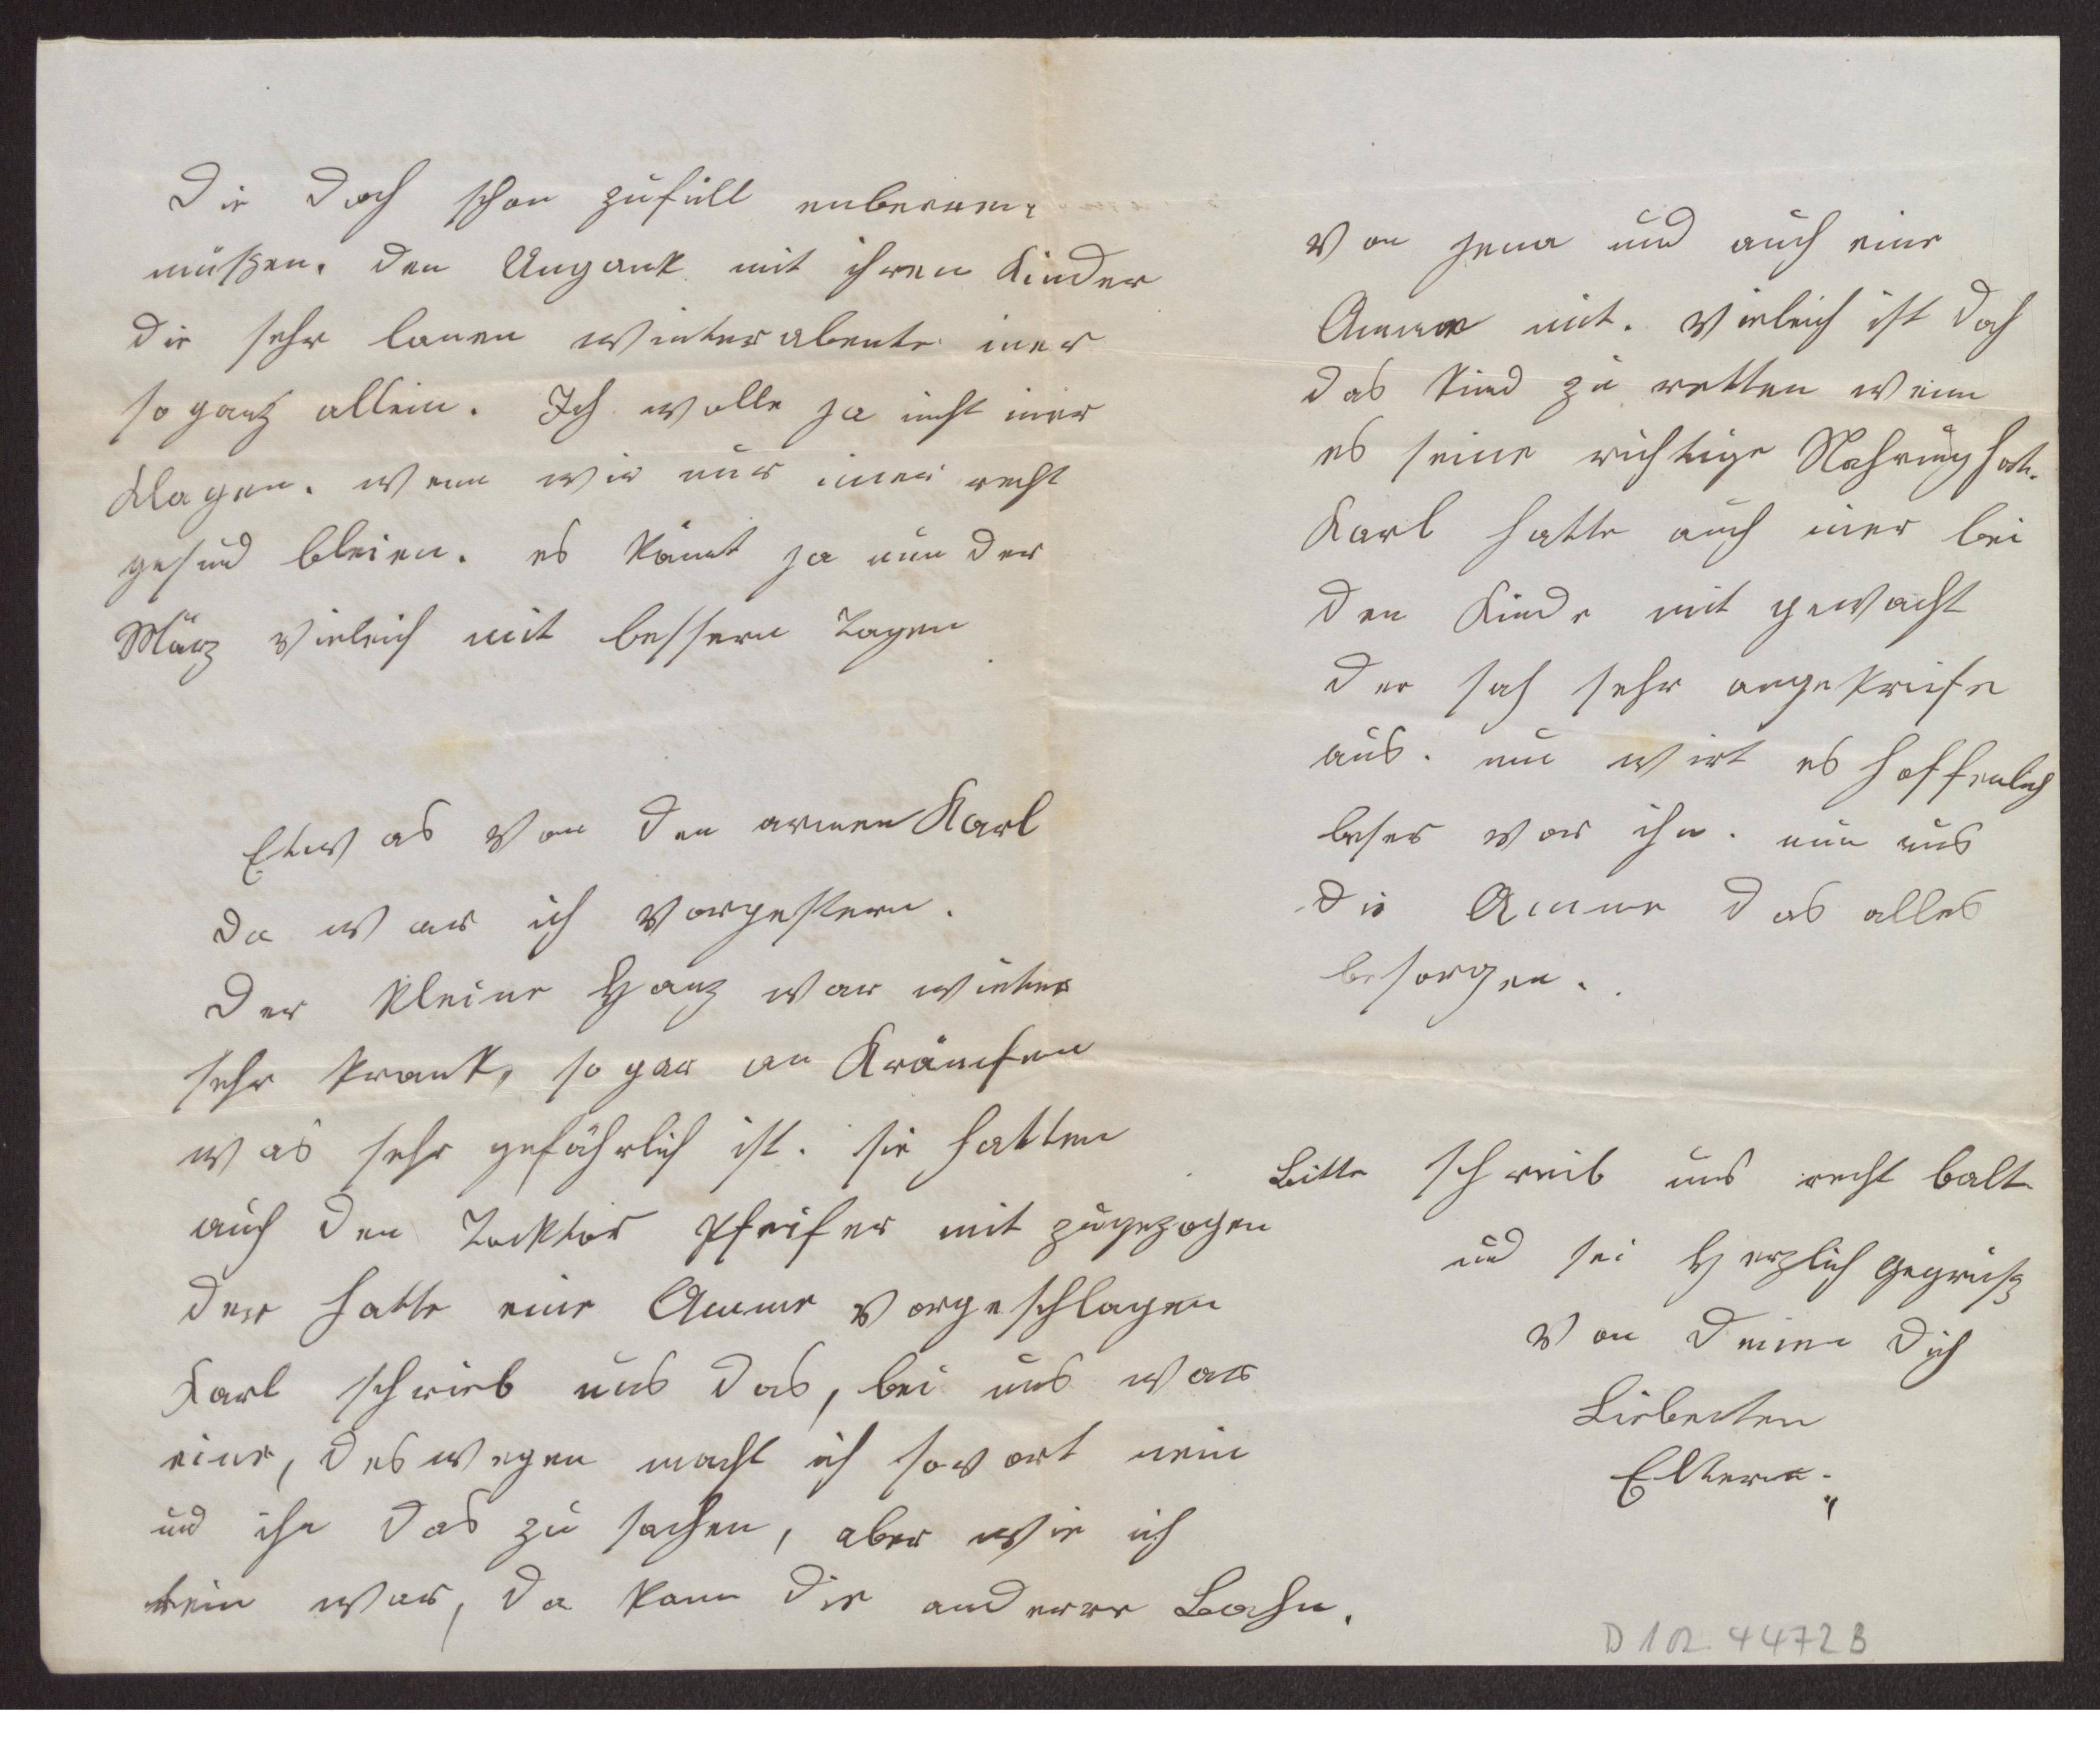 Die doch schon zufüll enberem
müßen. den Angank mit ihren Kinder
die sehr lanen Winterabente imer
so ganz allein. Ich wolle ja nicht imer
Klagen. wenn wir nur imer recht
gesund bleien. es kömt ja nun der
März vieleich mit bessern Tagen
Etwas von den armen Karl
da war ich vorgestern.
Der kleine Hanz war wieter
sehr krank, so gar an Krämfen
was sehr gefährlich ist. sie hatten
auch den Tocktor Pfeifer mit zugezogen
der hatte eine Amme vorgeschlagen
Karl schrieb uns das, bei uns war
eine, deswegen macht ich sovort nein
und ihn das zu sachen, aber wie ich
trein war, da kam die anderre Bahn.
von Jena und auch eine
Amme mit. vieleich ist doch
das Kind zu retten wenn
es seine richtige Nahrung hat.
Karl hatte auch imer bei
den Kinde mit gewacht
der sah sehr angekriefe
aus. nu wirt es hoffenlich
beser vor ihn. nun mus
die Amme das alles
besorgen.
Bitte schreib uns recht balt
und sei Herzlich Gegrüßt
von Deinen Dich
Liebenten
Eltern.
D 102 4472 B